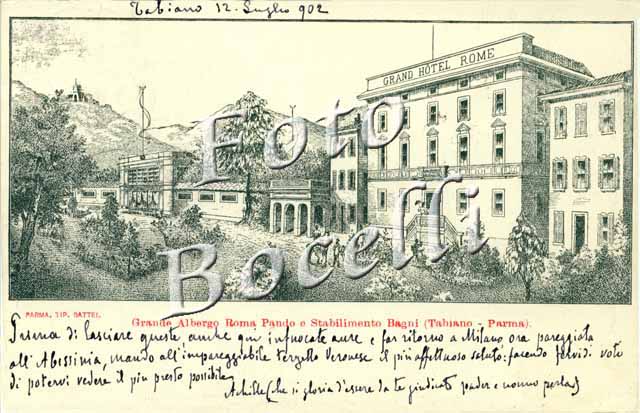 Tabiano 12. Luglio 902
GRAND HÔTEL ROME
Foto
Bocelli
PARMA, TIP. BATTEI.
Grande Albergo Roma Pando e Stabilimento Bagni (Tabiano - Parma).
Prima di lasciare queste, anche qui infuocate aure e far ritorno a Milano ora pareggiata
all'Abissinia, mando all'impareggiabile terzetto Veronese il più affettuoso saluto: facendo fervidi voti
di potervi vedere il più presto possibile
Achille (che si gloria d'essere da te giudicato padre e nonno perla)